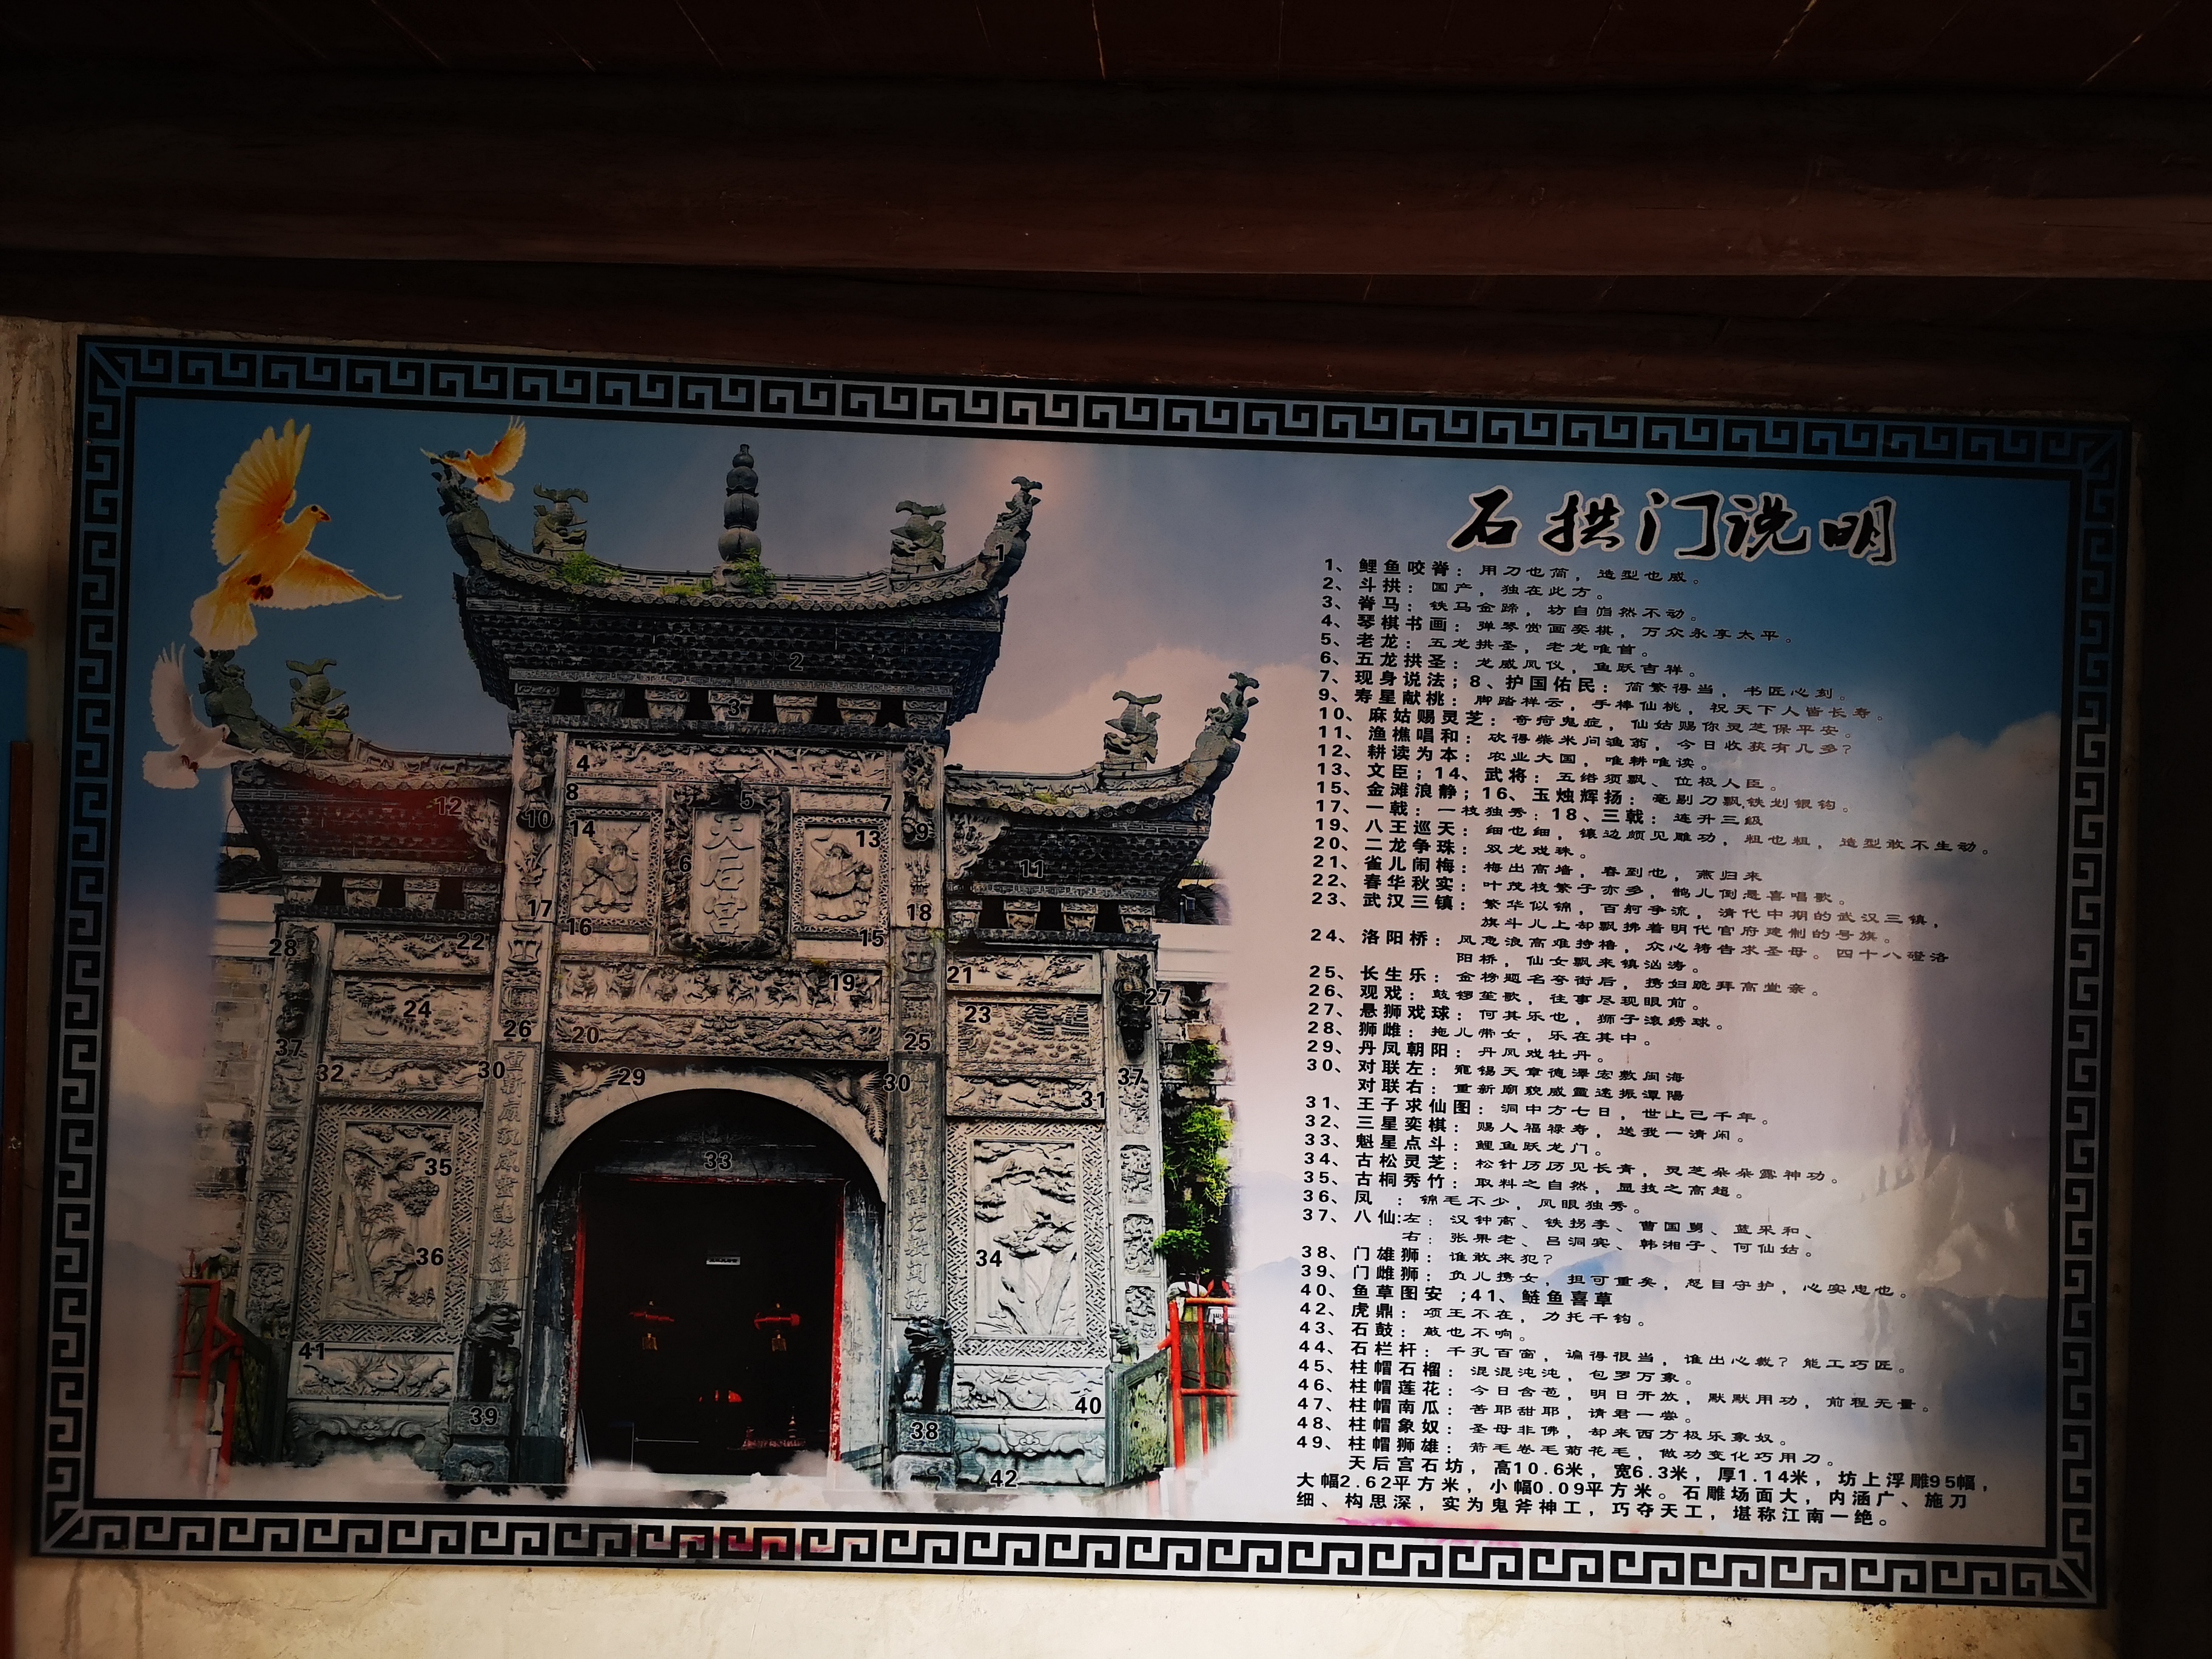 石拱门说明
1、鲤鱼咬脊：用刀也简，造型也威。
2、斗拱：国产，独在此方。
3、脊马：铁马金蹄，坊自岿然不动。
4、琴棋书画：弹琴赏画奕棋，万众永享太平。
5、老龙：五龙拱圣，老龙唯首。
6、五龙拱圣：龙威凤仪，鱼跃吉祥。
7、现身说法；8、护国佑民：简繁得当，书匠心刻。
9、寿星献桃：脚踏祥云，手棒仙桃，祝天下人皆长寿。
10、麻姑赐灵芝：奇疴鬼症，仙姑赐你灵芝保平安。
11、渔樵唱和：砍得柴米问渔翁，今日收获有几多？
12、耕读为本：农业大国，唯耕唯读。
13、文臣；14、武将：五绺须飘、位极人臣。
15、金滩浪静；16、玉烛辉扬：毫剔刀飘铁划银钩。
17、一戟：一枝独秀；18、三戟：连升三级
19、八王巡天：细也细，镶边颇见雕功，粗也粗，造型敢不生动。
20、二龙争珠：双龙戏珠。
21、雀儿闹梅：梅出高墙，春到也，燕归来
22、春华秋实：叶茂枝繁子亦多，鹊儿倒悬喜唱歌。
23、武汉三镇：繁华似锦，百舸争流，清代中期的武汉三镇，
旗斗儿上却飘拂着明代官府建制的号旗。
24、洛阳桥：风急浪高难持橹，众心祷告求圣母。四十八磴洛
阳桥，仙女飘来镇汹涛。
25、长生乐：金榜题名夸街后，携妇跪拜高堂亲。
26、观戏：鼓锣笙歌，往事尽现眼前。
27、悬狮戏球：何其乐也，狮子滚绣球。
28、狮雌：拖儿带女，乐在其中。
29、丹凤朝阳：丹凤戏牡丹。
30、对联左：寵锡天章德澤宏敷闽海
对联右：重新廟貌威靈遠振潭陽
31、王子求仙图：洞中方七日，世上已千年。
32、三星奕棋：赐人福禄寿，送我一清闲。
33、魁星点斗：鲤鱼跃龙门。
34、古松灵芝：松针历历见长青，灵芝朵朵露神功。
35、古桐秀竹：取料之自然，显技之高超。
36、凤 ：锦毛不少，凤眼独秀。
37、八仙:左：汉钟离、铁拐李、曹国舅、蓝采和、
右：张果老、吕洞宾、韩湘子、何仙姑。
38、门雄狮：谁敢来犯？
39、门雌狮：负儿携女，担可重矣，怒目守护，心实忠也。
40、鱼草图安 ;41、鲢鱼喜草
42、虎鼎：项王不在，力托千钧。
43、石鼓：敲也不响。
44、石栏杆：千孔百窗，谝得很当，谁出心裁？能工巧匠。
45、柱帽石榴：混混沌沌，包罗万象。
46、柱帽莲花：今日含苞，明日开放，默默用功，前程无量。
47、柱帽南瓜：苦耶甜耶，请君一尝。
48、柱帽象奴：圣母非佛，却来西方极乐象奴。
49、柱帽狮雄：箭毛卷毛菊花毛，做功变化巧用刀。
天后宫石坊，高10.6米，宽6.3米，厚1.14米，坊上浮雕95幅，
大幅2.62平方米，小幅0.09平方米。石雕场面大，内涵广、施刀
细、构思深，实为鬼斧神工，巧夺天工，堪称江南一绝。
天后宫
1
2
3
4
5
6
7
8
9
10
11
12
13
14
15
16
17
18
19
20
21
22
23
24
25
26
27
28
29
30
30
31
32
33
34
35
36
37
37
38
39
40
41
42